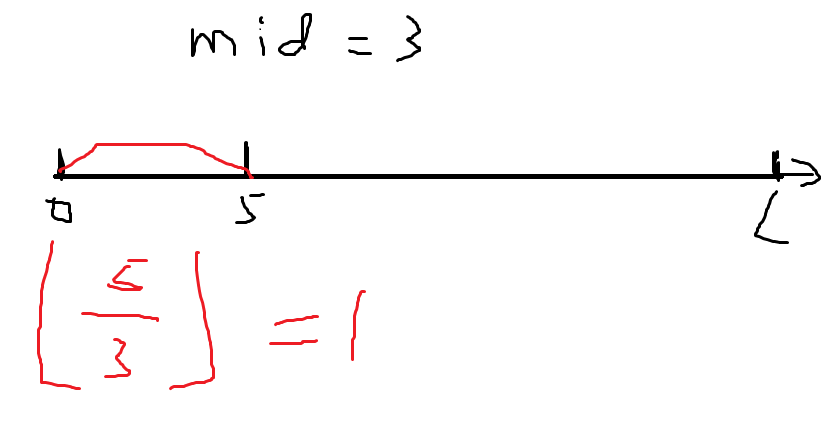 mid = 3
0 5 L
⌊5/3⌋ = 1